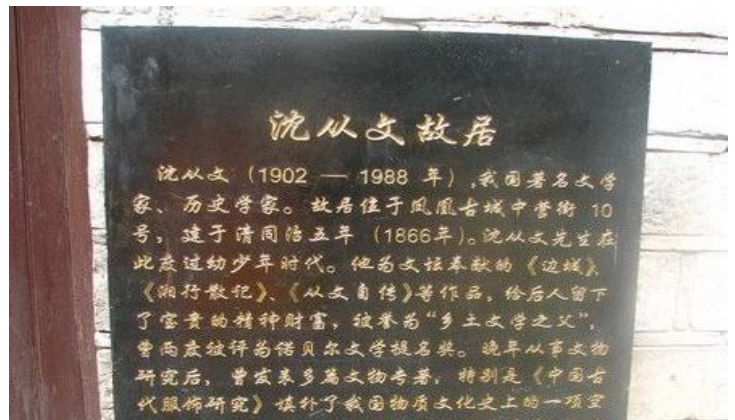 沈从文故居
沈从文（1902 — 1988 年），我国著名文学
家、历史学家。故居位于凤凰古城中营街 10
号，建于清同治五年（1866年）。沈从文先生在
此度过幼少年时代。他为文坛奉献的《边城》、
《湘行散记》、《从文自传》等作品，给后人留下
了宝贵的精神财富，被誉为“乡土文学之父”，
曾两度被评为诺贝尔文学提名奖。晚年从事文物
研究后，曾发表多篇文物专著，特别是《中国古
代服饰研究》填补了我国物质文化史上的一项空